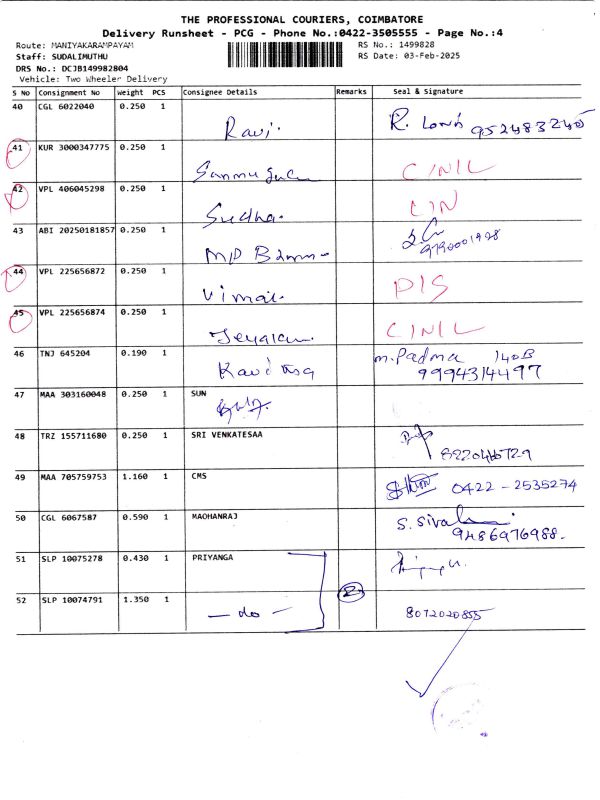 THE PROFESSIONAL COURIERS, COIMBATORE
Delivery Runsheet - PCG - Phone No.:0422-3505555 - Page No.:4
Route: MANIYAKARAMPAYAM RS No.: 1499828
Staff: SUDALIMUTHU RS Date: 03-Feb-2025
DRS No.: DCJB149982804
Vehicle: Two Wheeler Delivery
S No Consignment No Weight PCS Consignee Details Remarks Seal & Signature
40 CGL 6022040 0.250 1 Ravi. R. 9524832405
41 KUR 3000347775 0.250 1 C/N/L
42 VPL 406045298 0.250 1 Sudha. C/N
43 ABI 20250181857 0.250 1 M/D 9790001928
44 VPL 225656872 0.250 1 Vimal. D/S
45 VPL 225656874 0.250 1 C/N/L
46 TNJ 645204 0.190 1 Kavitha m. Padma 140B
9994314497
47 MAA 303160048 0.250 1 SUN
48 TRZ 155711680 0.250 1 SRI VENKATESAA
49 MAA 705759753 1.160 1 CMS 0422 - 2535274
50 CGL 6067587 0.590 1 MAOHANRAJ S. Siva
9486976988.
51 SLP 10075278 0.430 1 PRIYANGA
2
52 SLP 10074791 1.350 1 - do - 8072020855